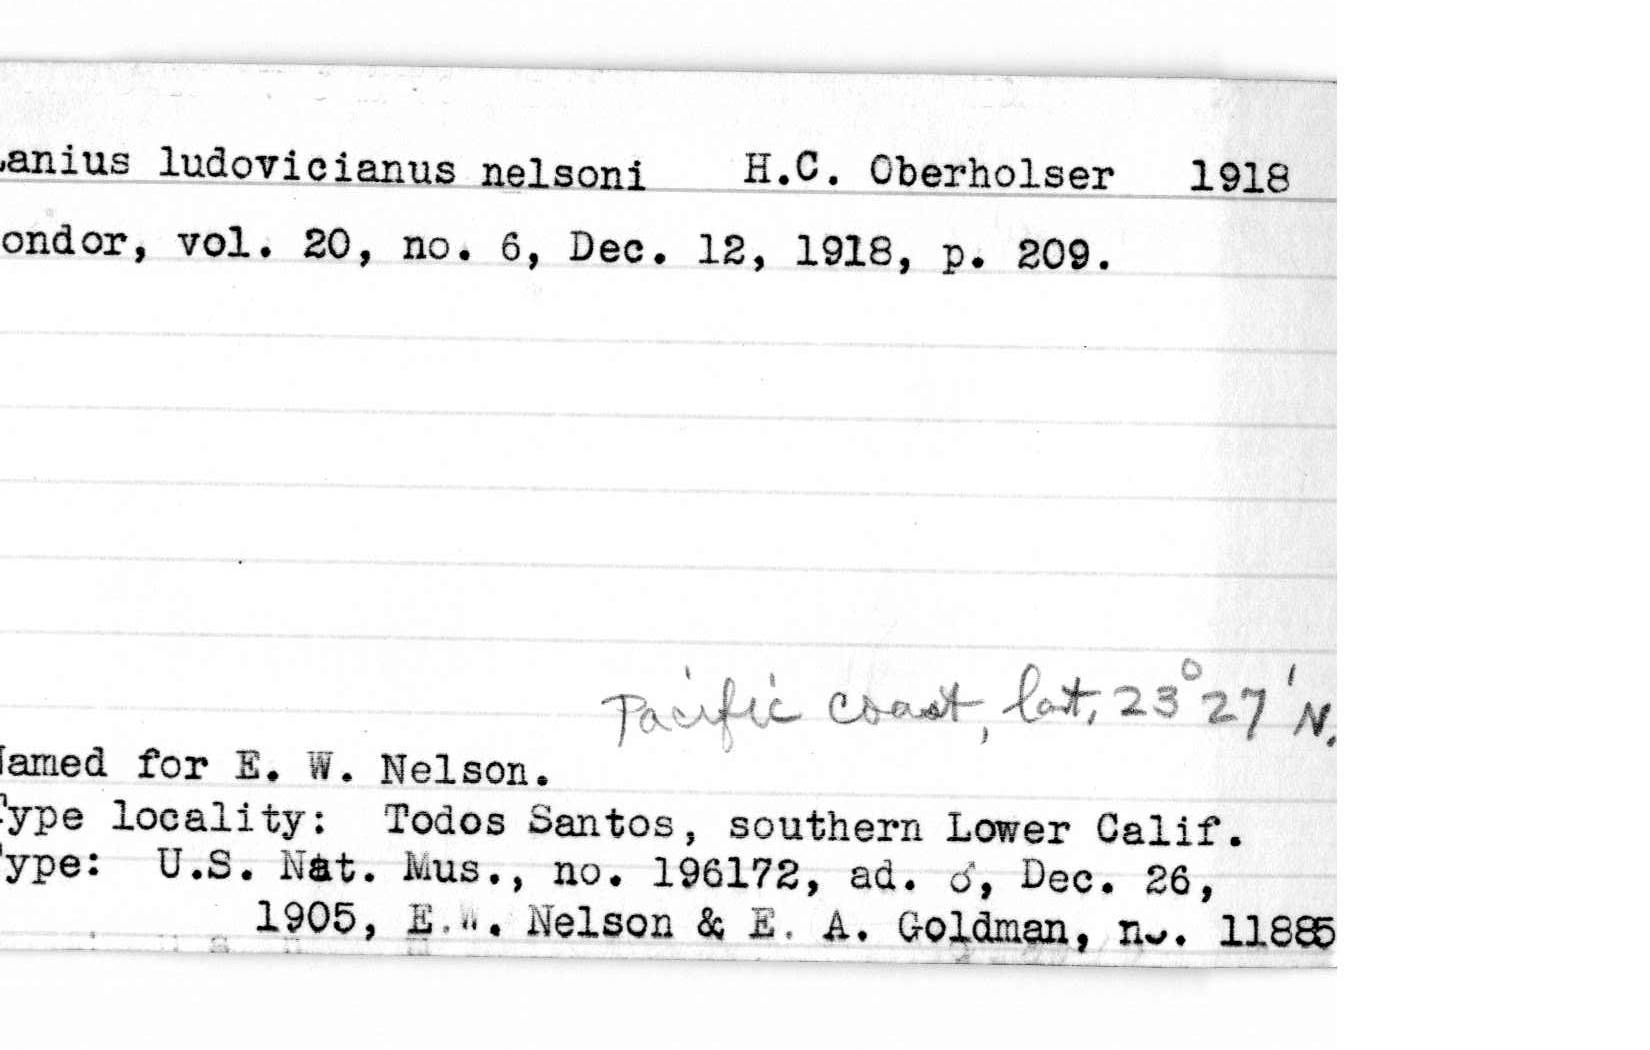 Lanius ludovicianus nelsoni H.C. Oberholser 1918
Condor, vol. 20, no. 6, Dec. 12, 1918, p. 209.
Pacific coast, lat, 23°27' N.
Named for E. W. Nelson.
Type locality: Todos Santos, southern Lower Calif.
Type: U.S. Nat. Mus., no. 196172, ad. ♂, Dec. 26,
1905, E.W. Nelson & E. A. Goldman, no. 11885